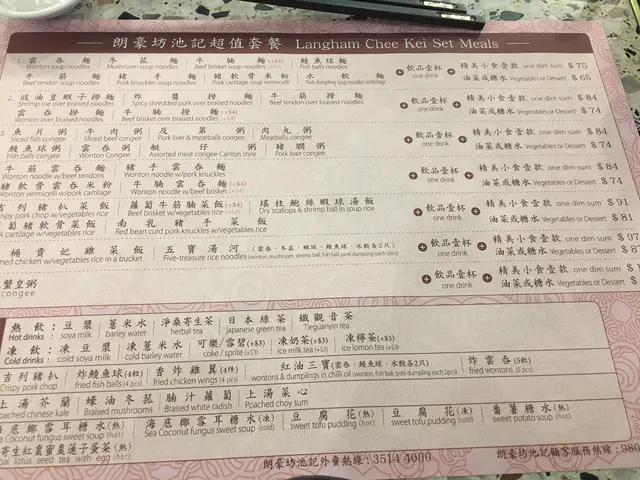 朗豪坊池記超值套餐 Langham Chee Kei Set Meals
1. 雲吞麵 冬菇麵 牛腩麵(+$4) 鯪魚球麵
Wonton soup noodles Mushroom soup noodles Beef brisket soup noodles(+$4) Fish balls noodles
牛筋麵 豬手麵 豬軟骨米粉 水餃麵
Beef tendon soup noodles Pork knuckles soup noodles Pork cartilage soup vermicelli Pork dumpling soup noodles w/shrimp
飲品壹杯 one drink
精美小食壹款 one dim sum $75
油菜或糖水 Vegetables or Dessert $65
2. 豉油皇蝦子撈麵 炸醬撈麵 牛筋撈麵
Shrimp roe over braised noodles Spicy shredded pork over braised noodles Beef tendon over braised noodles
雲吞撈麵 牛腩撈麵(+$4)
Wonton over braised noodles Beef brisket over braised noodles(+$4)
飲品壹杯 one drink
精美小食壹款 one dim sum $84
油菜或糖水 Vegetables or Dessert $74
3. 魚片粥 牛肉粥 及第粥 肉丸粥
Sliced fish congee Sliced beef congee Pork liver & meatballs congee Meatballs congee
鯪魚球粥 雲吞粥 艇仔粥 豬膶粥
Fish balls congee Wonton Congee Assorted meat congee Canton style Pork liver congee
飲品壹杯 one drink
精美小食壹款 one dim sum $84
油菜或糖水 Vegetables or Dessert $74
牛筋雲吞麵 豬手雲吞麵
Wonton noodle w/beef tendons Wonton noodle w/pork knuckles
豬軟骨雲吞米粉 牛腩雲吞麵(+$4)
Wonton vermicelli w/pork cartilage Wonton noodle w/beef brisket(+$4)
飲品壹杯 one drink
精美小食壹款 one dim sum $84
油菜或糖水 Vegetables or Dessert $74
吉列豬扒菜飯 蘿蔔牛筋腩菜飯(+$4) 瑤柱鮑絲蝦球湯飯
Crispy pork chop w/vegetables rice Beef brisket w/vegetables rice(+$4) Dry scallops & shrimp ball in soup rice
蘿蔔豬軟骨菜飯 南乳豬手菜飯
w/vegetables rice Red bean curd pork knuckles w/vegetables rice
飲品壹杯 one drink
精美小食壹款 one dim sum $91
油菜或糖水 Vegetables or Dessert $81
桶貴妃雞菜飯 五寶湯河(雲吞、冬菇、蝦球、鯪魚球、水餃各2只)
chicken w/vegetables rice in a bucket Five-treasure rice noodles(wonton, mushroom, shrimp ball, fish ball, pork dumpling each 2pcs)
飲品壹杯 one drink
精美小食壹款 one dim sum $97
油菜或糖水 Vegetables or Dessert
蟹皇粥
congee
飲品壹杯 one drink
精美小食壹款 one dim sum
油菜或糖水 Vegetables or Dessert
熱飲： 豆漿 薏米水 淨桑寄生茶 日本綠茶 鐵觀音茶
Hot drinks: soya milk barley water herbal tea Japanese green tea Tieguanyin tea
凍飲： 凍豆漿 凍薏米水 可樂/雪碧(+$3) 凍奶茶(+$3) 凍檸茶(+$3)
Cold drinks: cold soya milk cold barley water coke / sprite (+$3) ice milk tea (+$3) ice lomon tea (+$3)
吉列豬扒 炸鯪魚球(4粒) 香炸雞翼(4件) 紅油三寶(雲吞、鯪魚球、水餃各2只) 炸雲吞(5粒)
Crispy pork chop fried fish balls (4 pcs) fried chicken wings (4 pcs) wontons & dumplings in chilli oil (wonton, fish ball, pork dumpling each 2pcs) fried wontons (5 pcs)
上湯芥蘭 蠔油冬菇 腩汁蘿蔔 上湯菜心
Poached chinese kale Braised mushrooms Braised white radish Poached choy sum
海底椰雪耳糖水(熱) 海底椰雪耳糖水(凍) 豆腐花(熱) 豆腐花(凍) 番薯糖水(熱)
Sea Coconut fungus sweet soup (hot) Sea Coconut fungus sweet soup (cold) sweet tofu pudding (hot) sweet tofu pudding (cold) sweet potato soup (hot)
寄生紅棗蜜棗蓮子蛋茶(熱)
lotus seed tea with egg (hot)
朗豪坊池記外賣熱線：3514 4000 朗豪坊池記顧客服務熱線：980